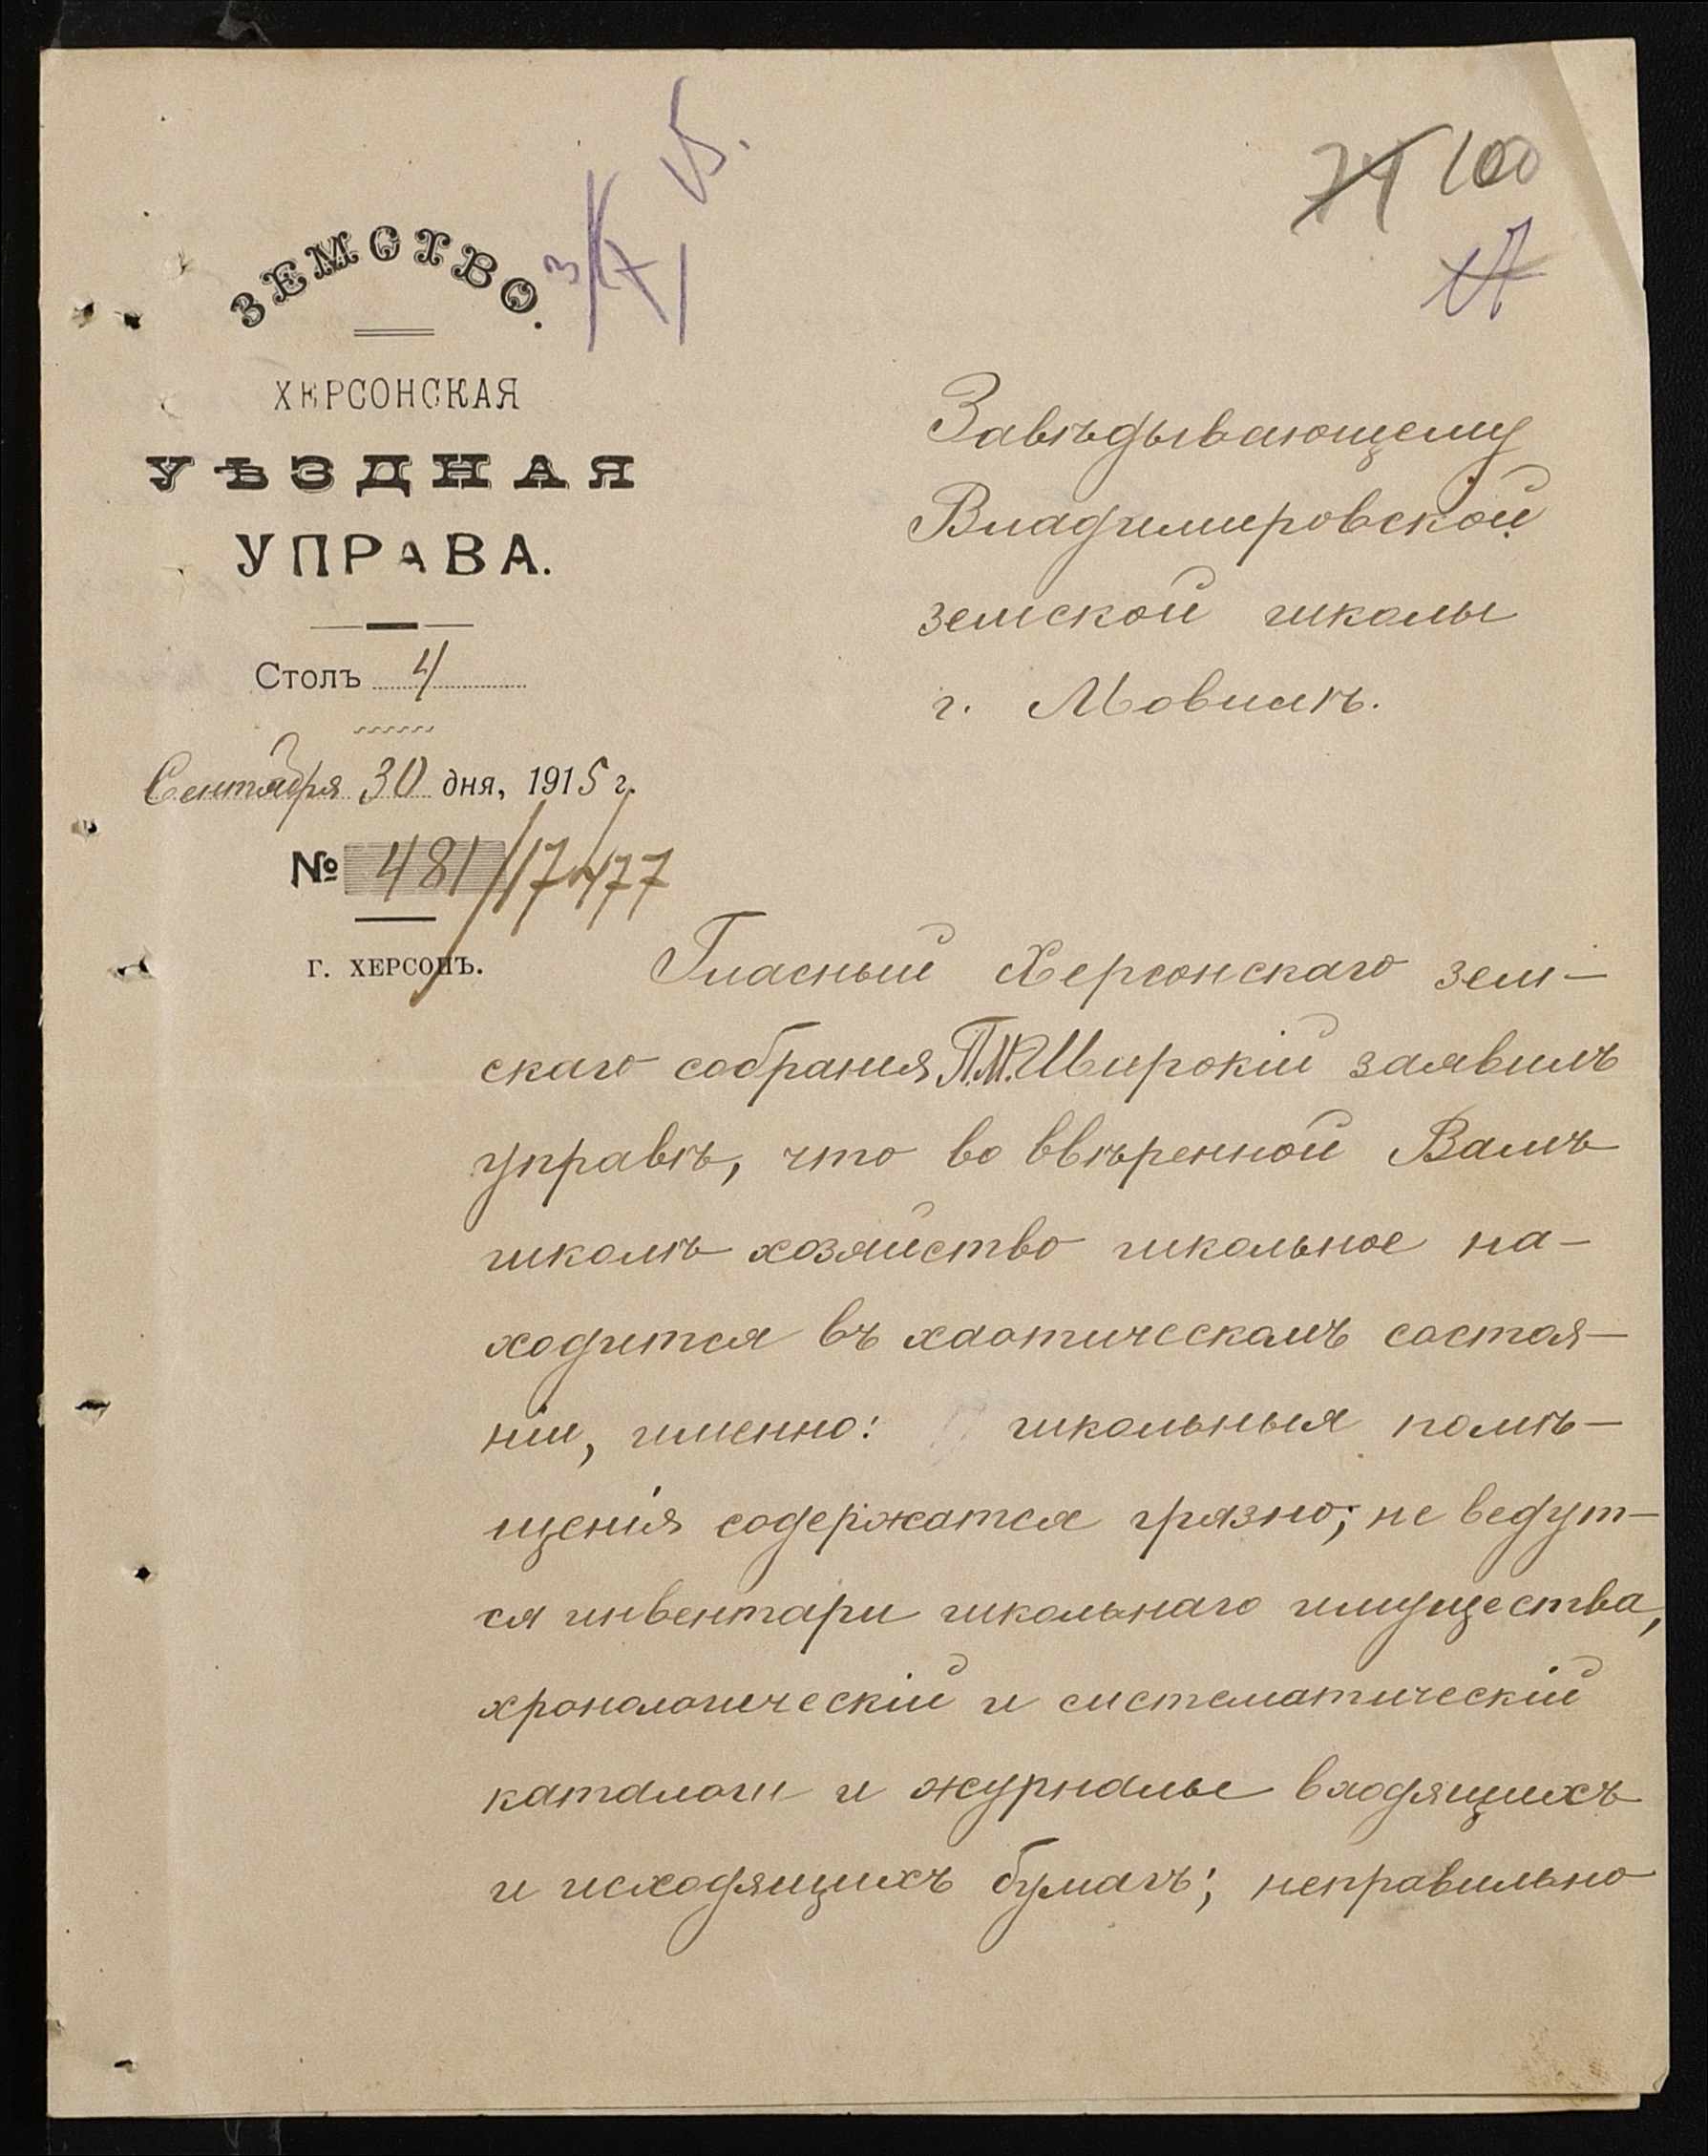 74 100
17
3/X 15.
ЗЕМСТВО.
ХЕРСОНСКАЯ
УѢЗДНАЯ
УПРАВА.
Столъ 4
Сентября 30 дня, 1915 г.
№ 481/17477
Г. ХЕРСОНЪ.
Завѣдывающему
Владимировской
земской школы
г.
Гласный Херсонскаго зем-
скаго собранія П.М. Широкій заявилъ
управѣ, что во ввѣренной Вамъ
школѣ хозяйство школьное на-
ходится въ хаотическомъ состоя-
ніи, именно: школьныя помѣ-
щенія содержатся грязно; не ведут-
ся инвентари школьнаго имущества,
хронологическій и систематическій
каталоги и журналы входящихъ
и исходящихъ бумагъ; неправильно